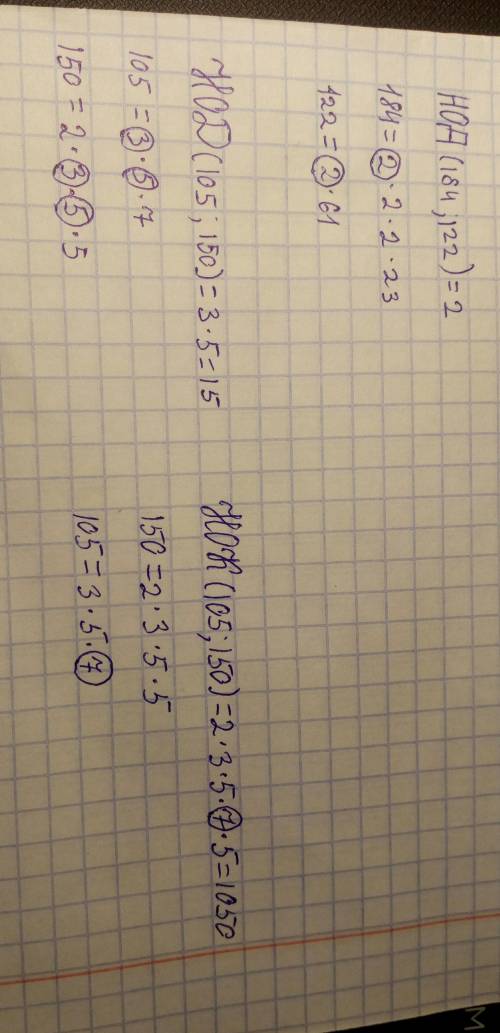 НОД (184; 122) = 2
184 = 2 · 2 · 2 · 23
122 = 2 · 61
НОД (105; 150) = 3 · 5 = 15
105 = 3 · 5 · 7
150 = 2 · 3 · 5 · 5
НОК (105; 150) = 2 · 3 · 5 · 7 · 5 = 1050
150 = 2 · 3 · 5 · 5
105 = 3 · 5 · 7
M